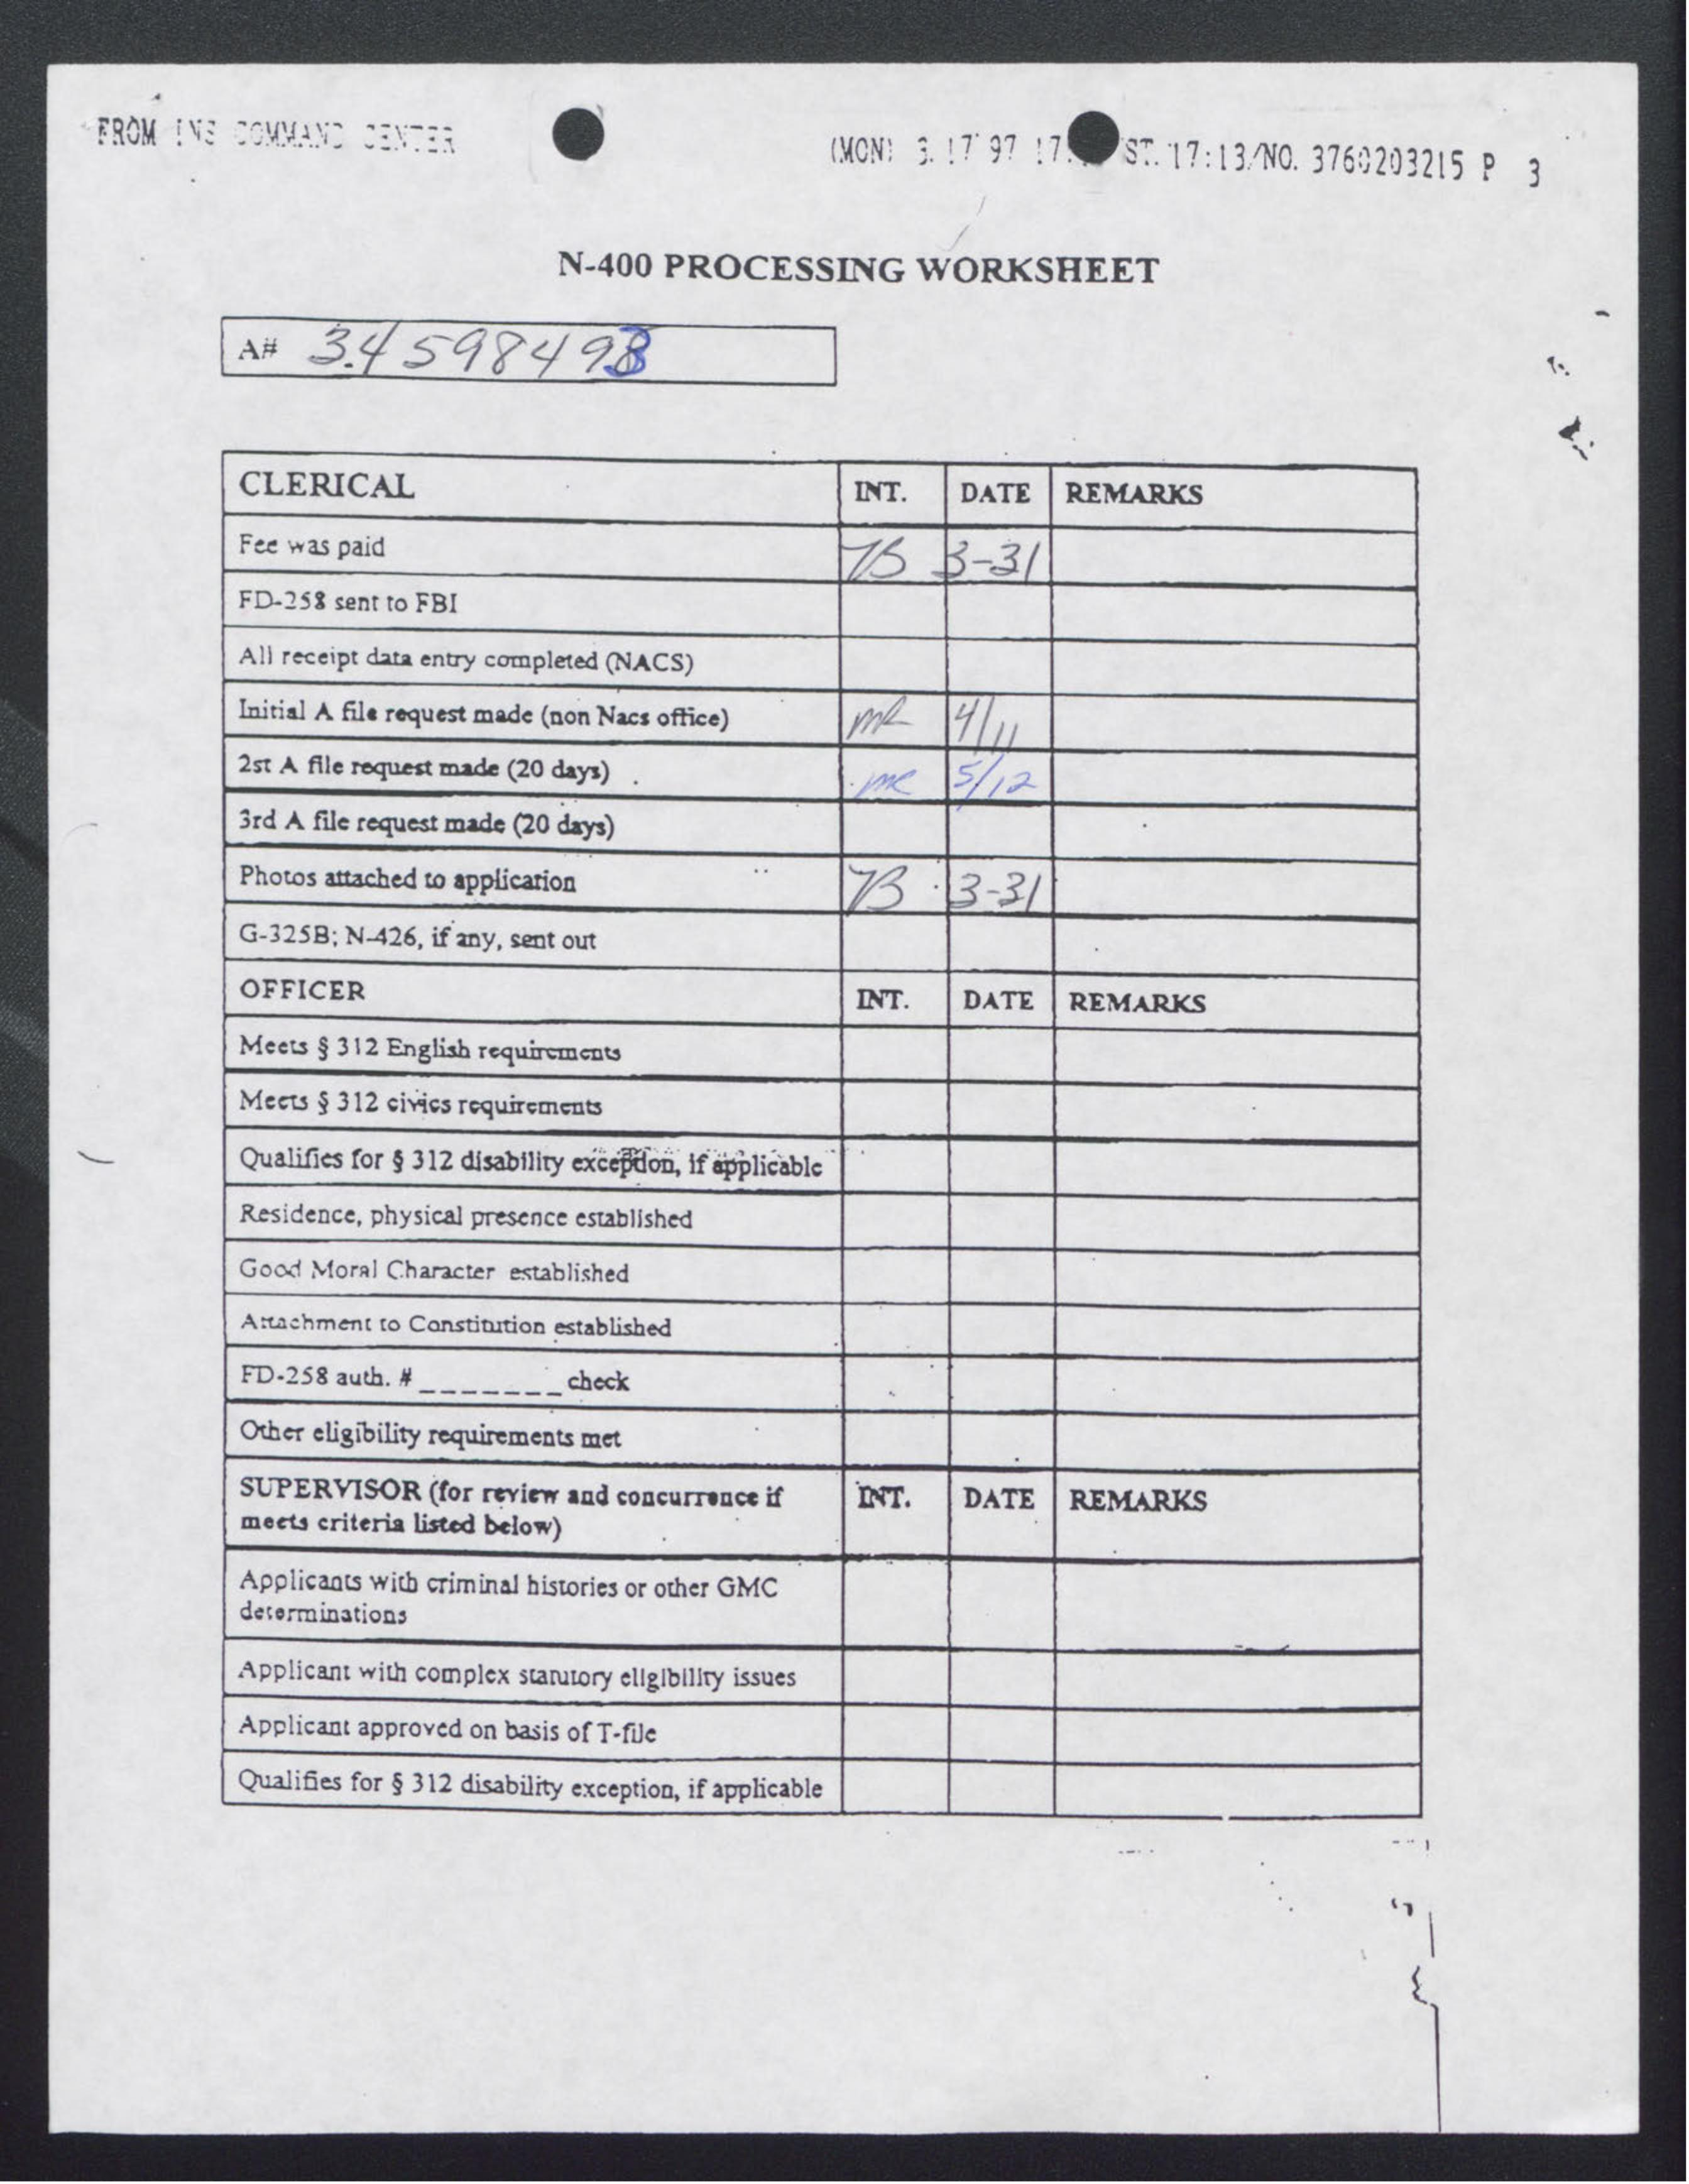 FROM INS COMMAND CENTER
(MON) 3. 17' 97 17: ST. 17:13/NO. 3760203215 P 3
N-400 PROCESSING WORKSHEET
A# 34598493
CLERICAL INT. DATE REMARKS
Fee was paid 3-31
FD-258 sent to FBI
All receipt data entry completed (NACS)
Initial A file request made (non Nacs office) 4/11
2st A file request made (20 days) 5/12
3rd A file request made (20 days)
Photos attached to application 3-31
G-325B; N-426, if any, sent out
OFFICER INT. DATE REMARKS
Meets § 312 English requirements
Meets § 312 civics requirements
Qualifies for § 312 disability exception, if applicable
Residence, physical presence established
Good Moral Character established
Attachment to Constitution established
FD-258 auth. # _______ check
Other eligibility requirements met
SUPERVISOR (for review and concurrence if INT. DATE REMARKS
meets criteria listed below)
Applicants with criminal histories or other GMC
determinations
Applicant with complex statutory eligibility issues
Applicant approved on basis of T-file
Qualifies for § 312 disability exception, if applicable